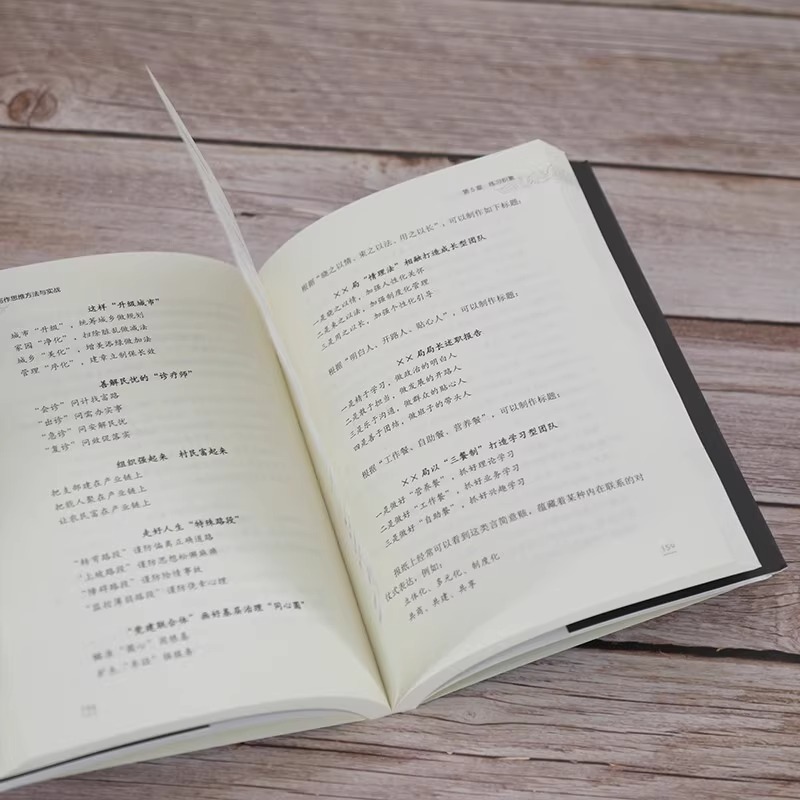 作思维方法与实战
这样“升级城市”
城市“升级”，统筹城乡做规划
家园“净化”，扫除脏乱做减法
城乡“美化”，增美添绿做加法
管理“序化”，建章立制保长效
善解民忧的“诊疗师”
“会诊”问计找富路
“出诊”问需办实事
“急诊”问安解民忧
“复诊”问效促落实
组织强起来 村民富起来
把支部建在产业链上
把能人聚在产业链上
让农民富在产业链上
走好人生“特殊路段”
“转弯路段”谨防偏离正确道路
“上坡路段”谨防思想松懈麻痹
“障碍路段”谨防险情事故
“监控薄弱路段”谨防侥幸心理
“党建联合体”画好基层治理“同心圆”
第5章 练习积累
根据“晓之以情、束之以法、用之以长”，可以制作如下标题：
××局“情理法”相融打造成长型团队
一是晓之以情，加强人性化关怀
二是束之以法，加强制度化管理
三是用之以长，加强个性化引导
根据“明白人、开路人、贴心人”，可以制作标题：
××局局长述职报告
一是精于学习，做政治的明白人
二是敢于担当，做发展的开路人
三是乐于沟通，做群众的贴心人
四是善于团结，做班子的带头人
根据“工作餐、自助餐、营养餐”，可以制作标题：
××局以“三餐制”打造学习型团队
一是做好“营养餐”，抓好理论学习
二是做好“工作餐”，抓好业务学习
三是做好“自助餐”，抓好兴趣学习
报纸上经常可以看到这类言简意赅、蕴藏着某种内在联系的对
仗式表达，例如：
立体化、多元化、制度化
共商、共建、共享
159